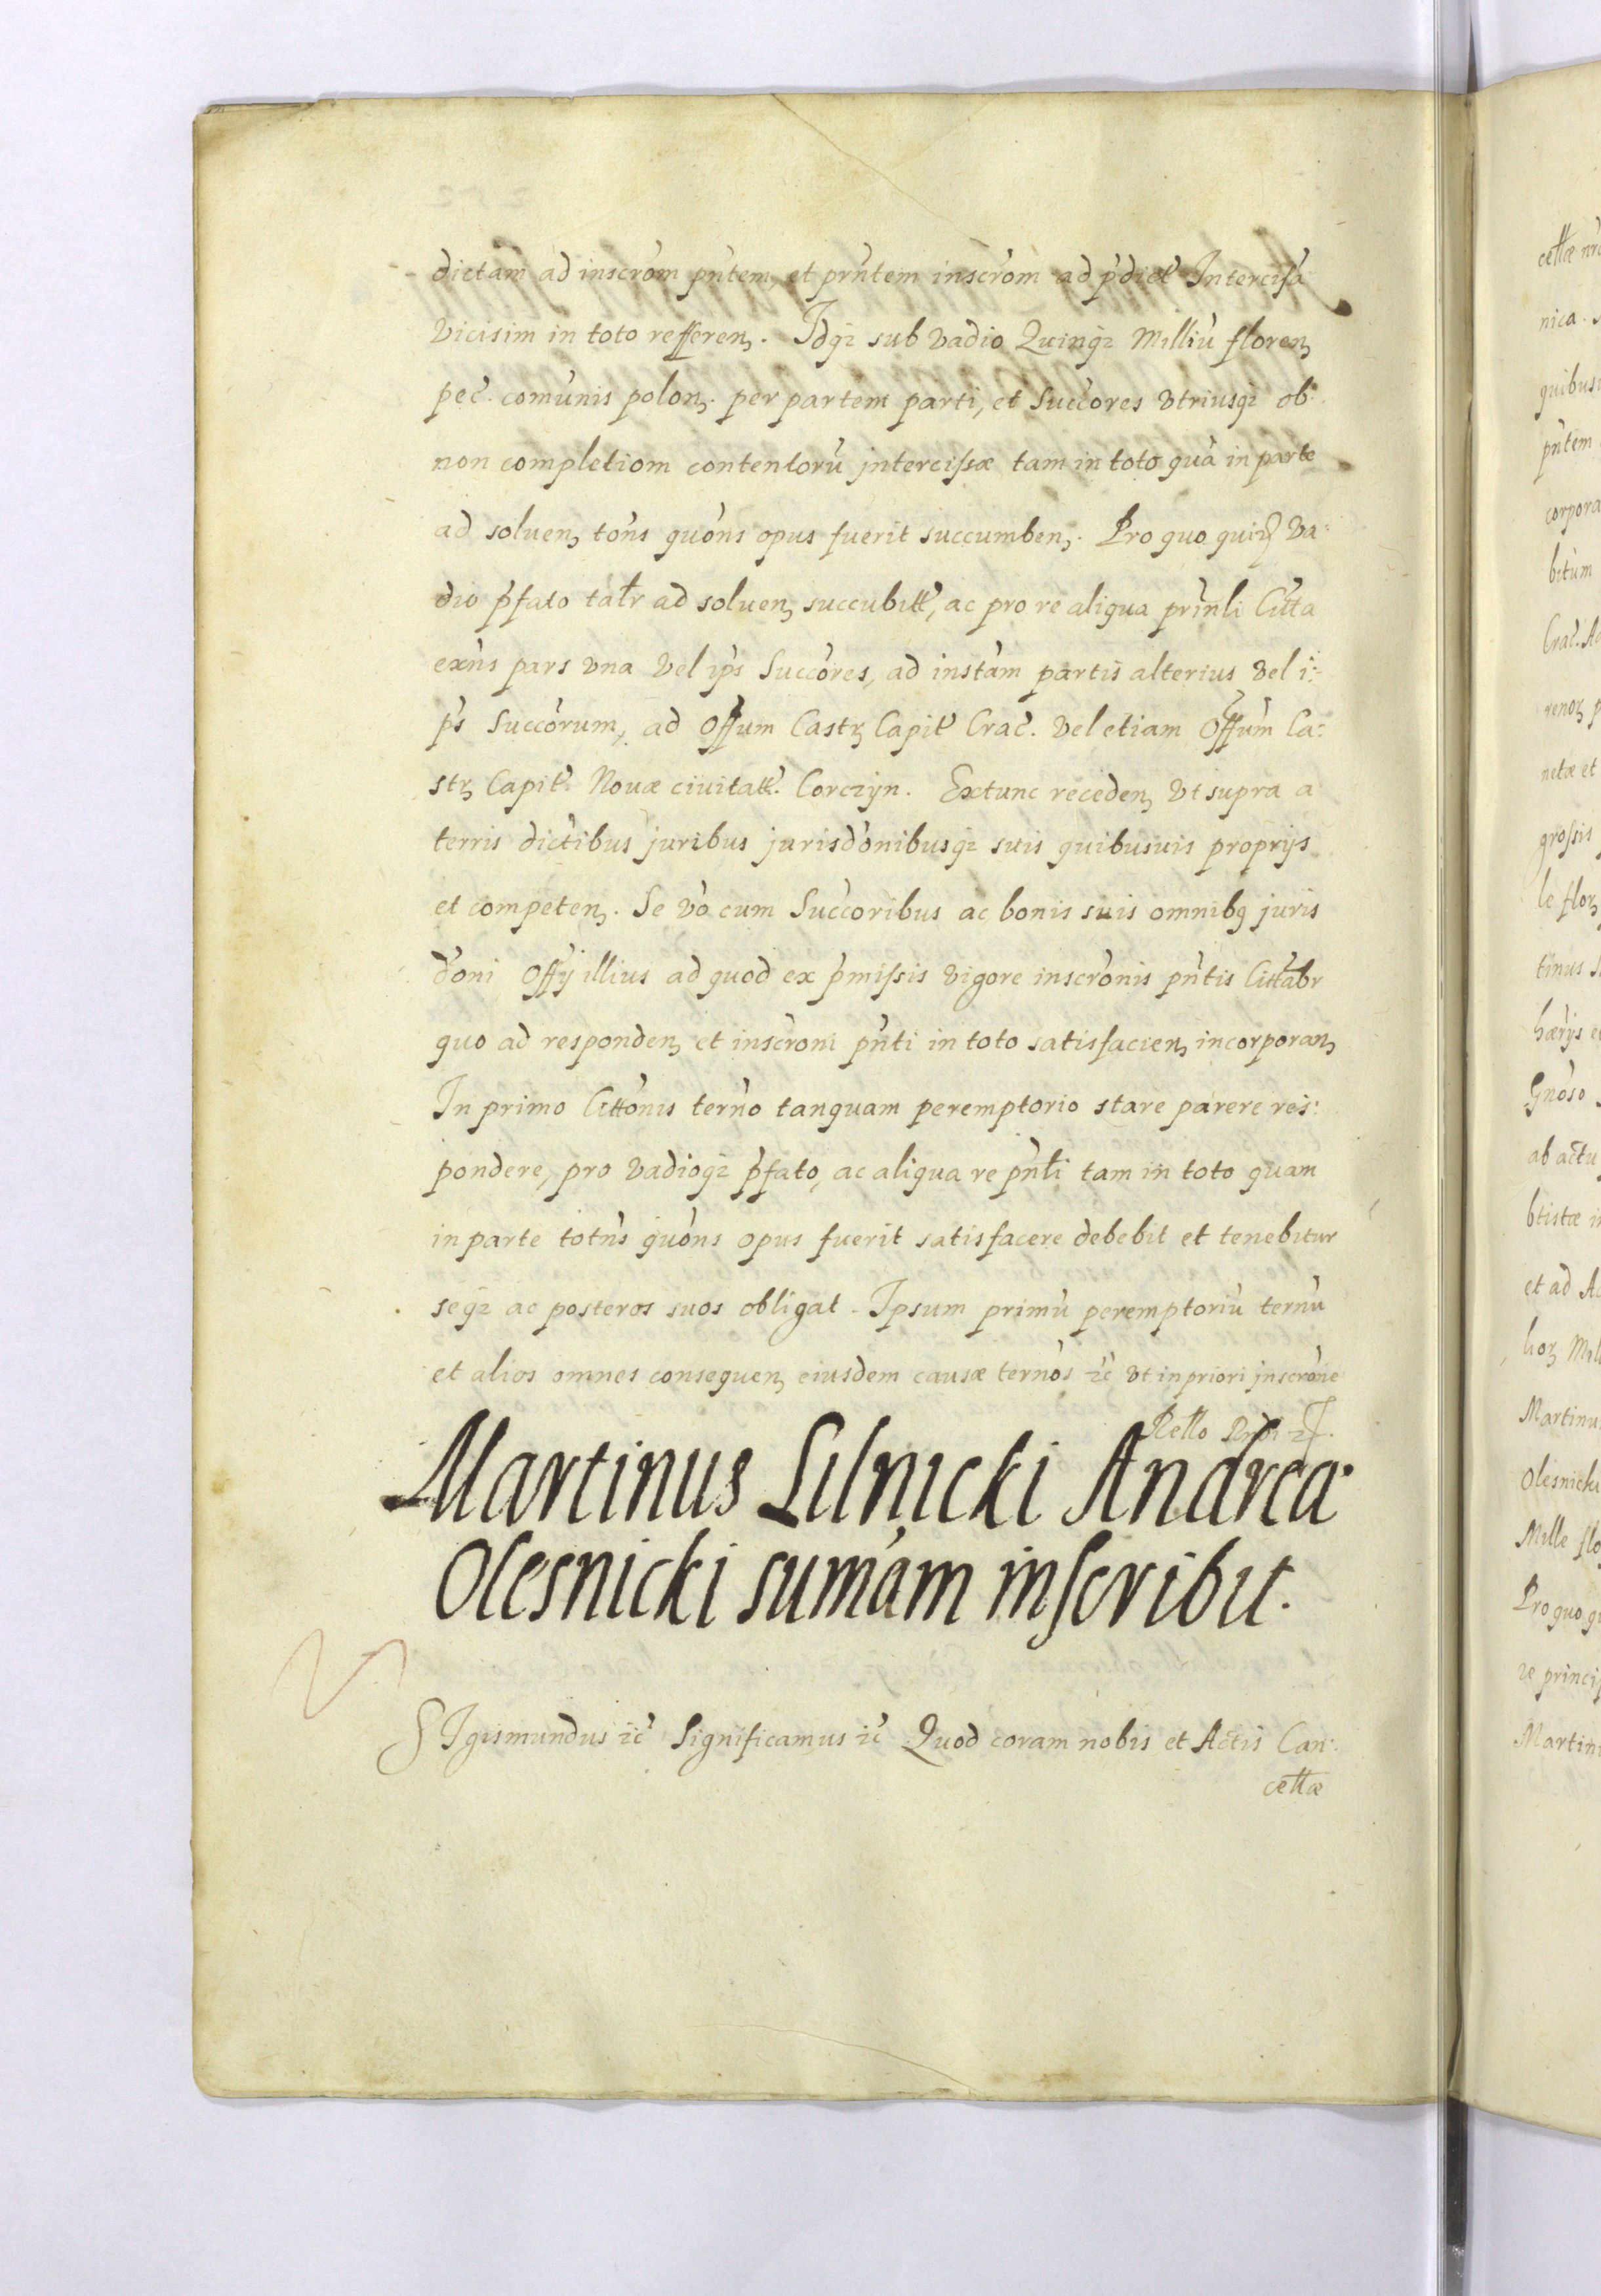 dictam ad inscrom pntem, et prntem inscrom ad pdict Intercisa
vicisim in toto referen. Idq sub vadio Quinqz Milliu floren
pec. comunis polon. per partem parti, et Succores vtriusqz ob
non completiom contentoru intercissæ tam in toto qua in parte
ad soluen, tons quons opus fuerit succumben. Pro quo quid va=
dio pfato talr ad soluen succubitt, ac pro re aliqua prinli Citta
exns pars vna vel ips Succores, ad instam partis alterius vel i=
ps Succorum, ad Offum Castr Capit Crac. vel etiam Offum Ca=
str Capit Nouæ ciuitatt. Corczyn. Extunc receden vt supra a
terris dictibus juribus jurisdonibusqz suis quibusuis proprijs
et competen. Se vo cum Succoribus ac bonis suis omnibq juris
doni Offij illius ad quod ex pmissis vigore inscronis pntis Cittabr
quo ad responden et inscroni pnti in toto satisfacien incorporan
In primo Cittonis terno tanquam peremptorio stare parere res:
pondere, pro vadioqz pfato, ac aliqua re pnli tam in toto quam
in parte totns quons opus fuerit satisfacere debebit et tenebitur
seqz ac posteros suos obligat. Ipsum primu peremptoriu ternu
et alios omnes consequen eiusdem causæ ternos zc vt in priori inscrone
Martinus Silnicki Andreæ
Olesnicki sumam inscribit.
SIgismundus zc Significamus zc Quod coram nobis et Actis Can:
cellæ